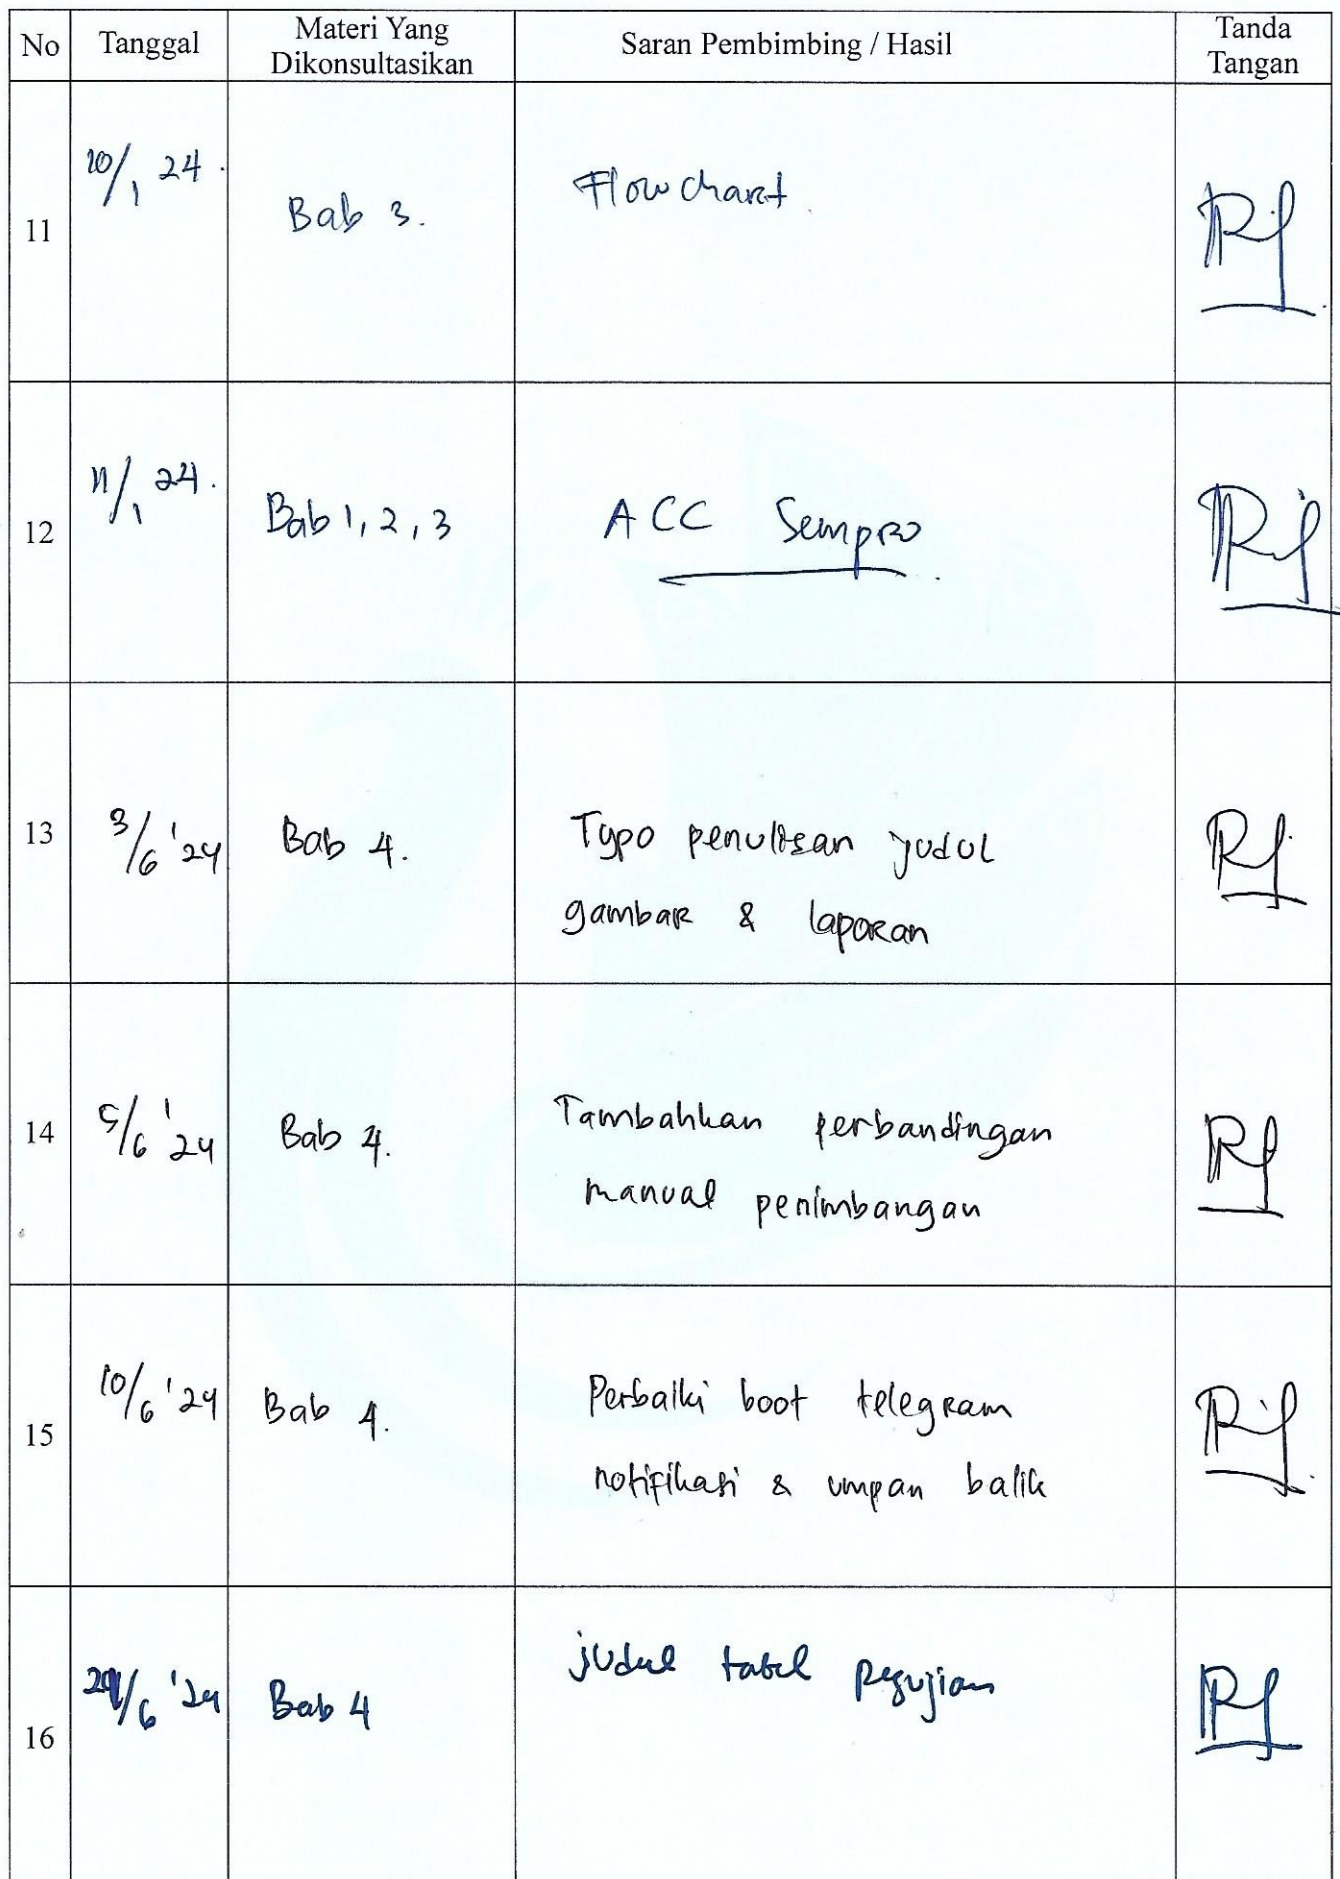 No Tanggal Materi Yang Dikonsultasikan Saran Pembimbing / Hasil Tanda Tangan
11 10/1 24. Bab 3. Flowchart
12 11/1 24. Bab 1, 2, 3 ACC Sempro
13 3/6 '24 Bab 4. Typo penulisan judul
gambar & laporan
14 5/6 '24 Bab 4. Tambahkan perbandingan
manual penimbangan
15 10/6 '24 Bab 4. Perbaiki boot telegram
notifikasi & umpan balik
16 /6 '24 Bab 4 judul tabel